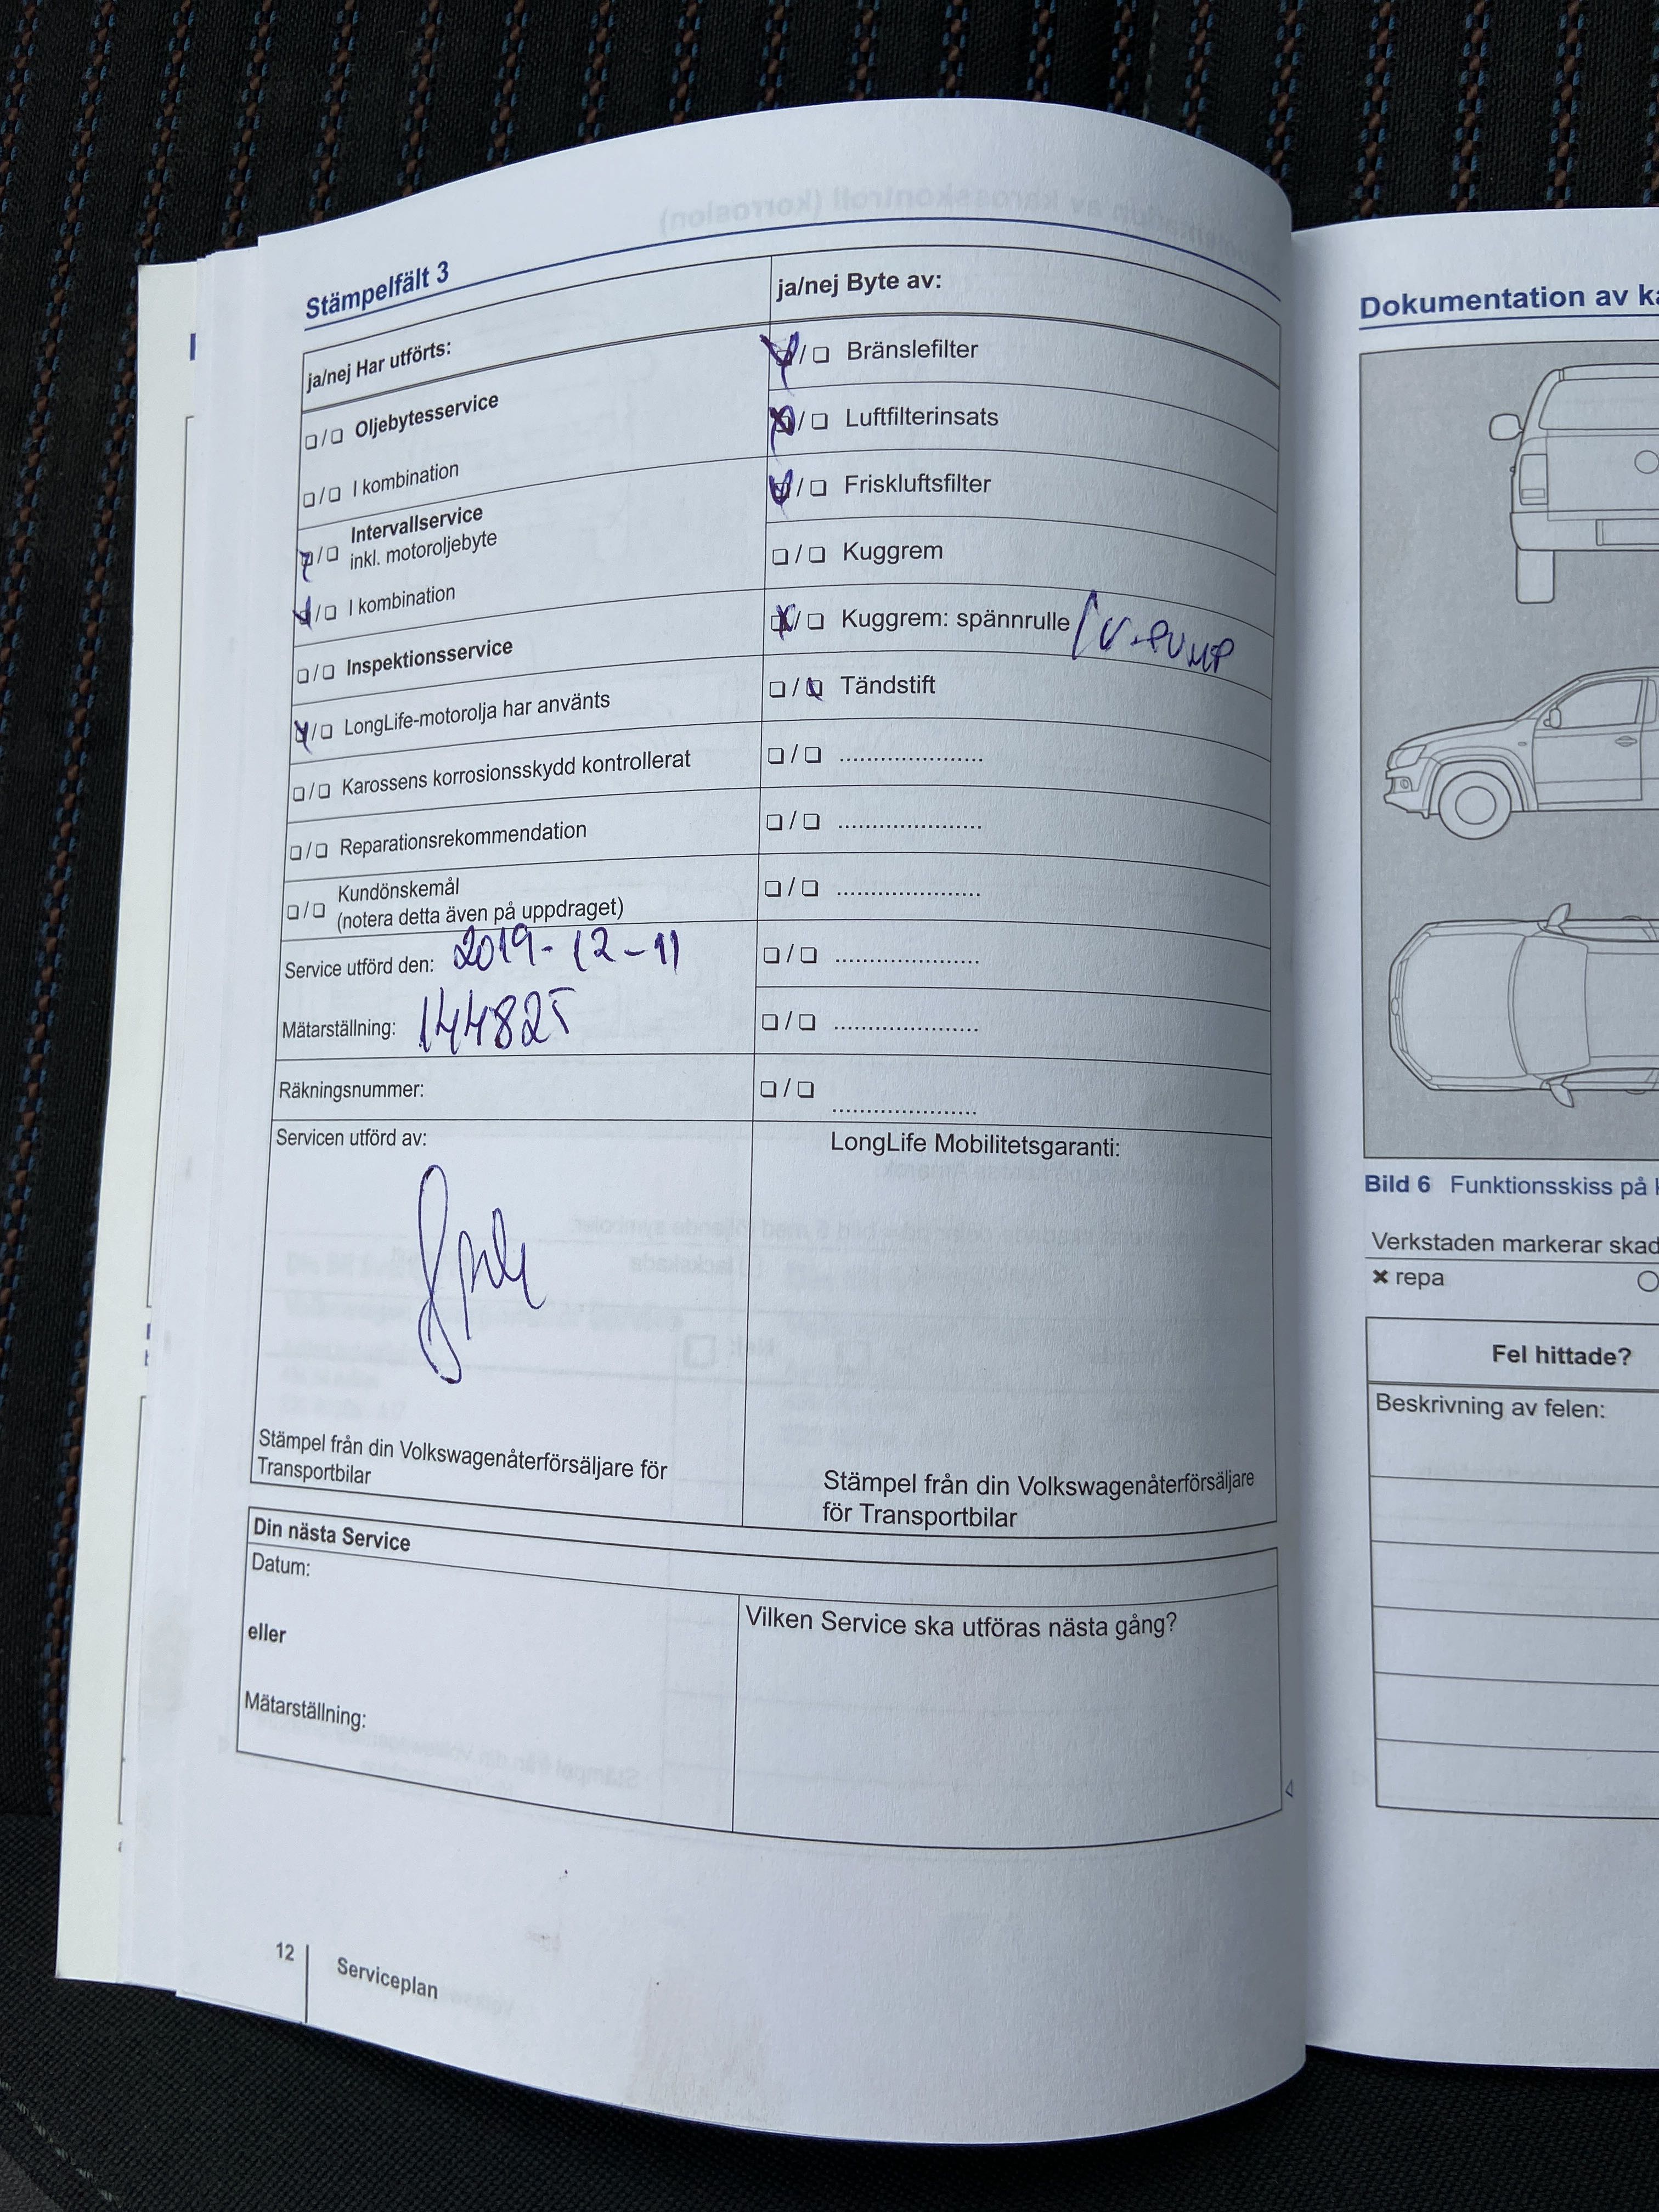 Stämpelfält 3
ja/nej Har utförts:
❏/❏ Oljebytesservice
❏/❏ I kombination
❏/❏ Intervallservice
inkl. motoroljebyte
❏/❏ I kombination
❏/❏ Inspektionsservice
❏/❏ LongLife-motorolja har använts
❏/❏ Karossens korrosionsskydd kontrollerat
❏/❏ Reparationsrekommendation
❏/❏ Kundönskemål
(notera detta även på uppdraget)
Service utförd den: 2019-12-11
Mätarställning: 144825
Räkningsnummer:
Servicen utförd av:
Stämpel från din Volkswagenåterförsäljare för
Transportbilar
ja/nej Byte av:
❏/❏ Bränslefilter
❏/❏ Luftfilterinsats
❏/❏ Friskluftsfilter
❏/❏ Kuggrem
❏/❏ Kuggrem: spännrulle / V-PUMP
❏/❏ Tändstift
❏/❏ ......................
❏/❏ ......................
❏/❏ ......................
❏/❏ ......................
❏/❏ ......................
❏/❏ ......................
LongLife Mobilitetsgaranti:
Stämpel från din Volkswagenåterförsäljare
för Transportbilar
Din nästa Service
Datum:
eller
Mätarställning:
Vilken Service ska utföras nästa gång?
12
Serviceplan
Dokumentation av
Bild 6 Funktionsskiss på
Verkstaden markerar
× repa
Fel hittade?
Beskrivning av felen: